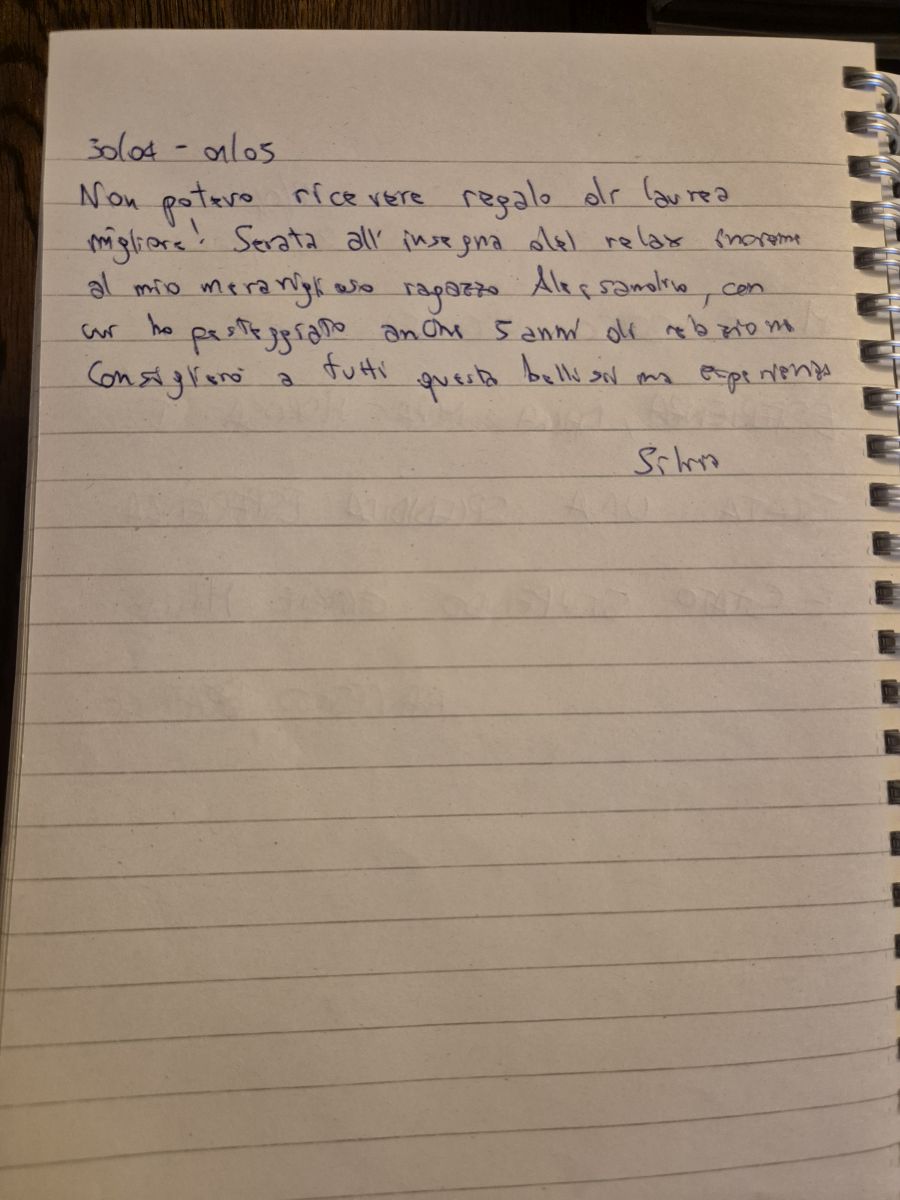 30/04 - 01/05
Non potevo ricevere regalo di laurea
migliore! Serata all'insegna del relax insieme
al mio meraviglioso ragazzo Alessandro, con
cui ho festeggiato anche 5 anni di relazione
Consiglierò a tutti questa bellissima esperienza
Silvia